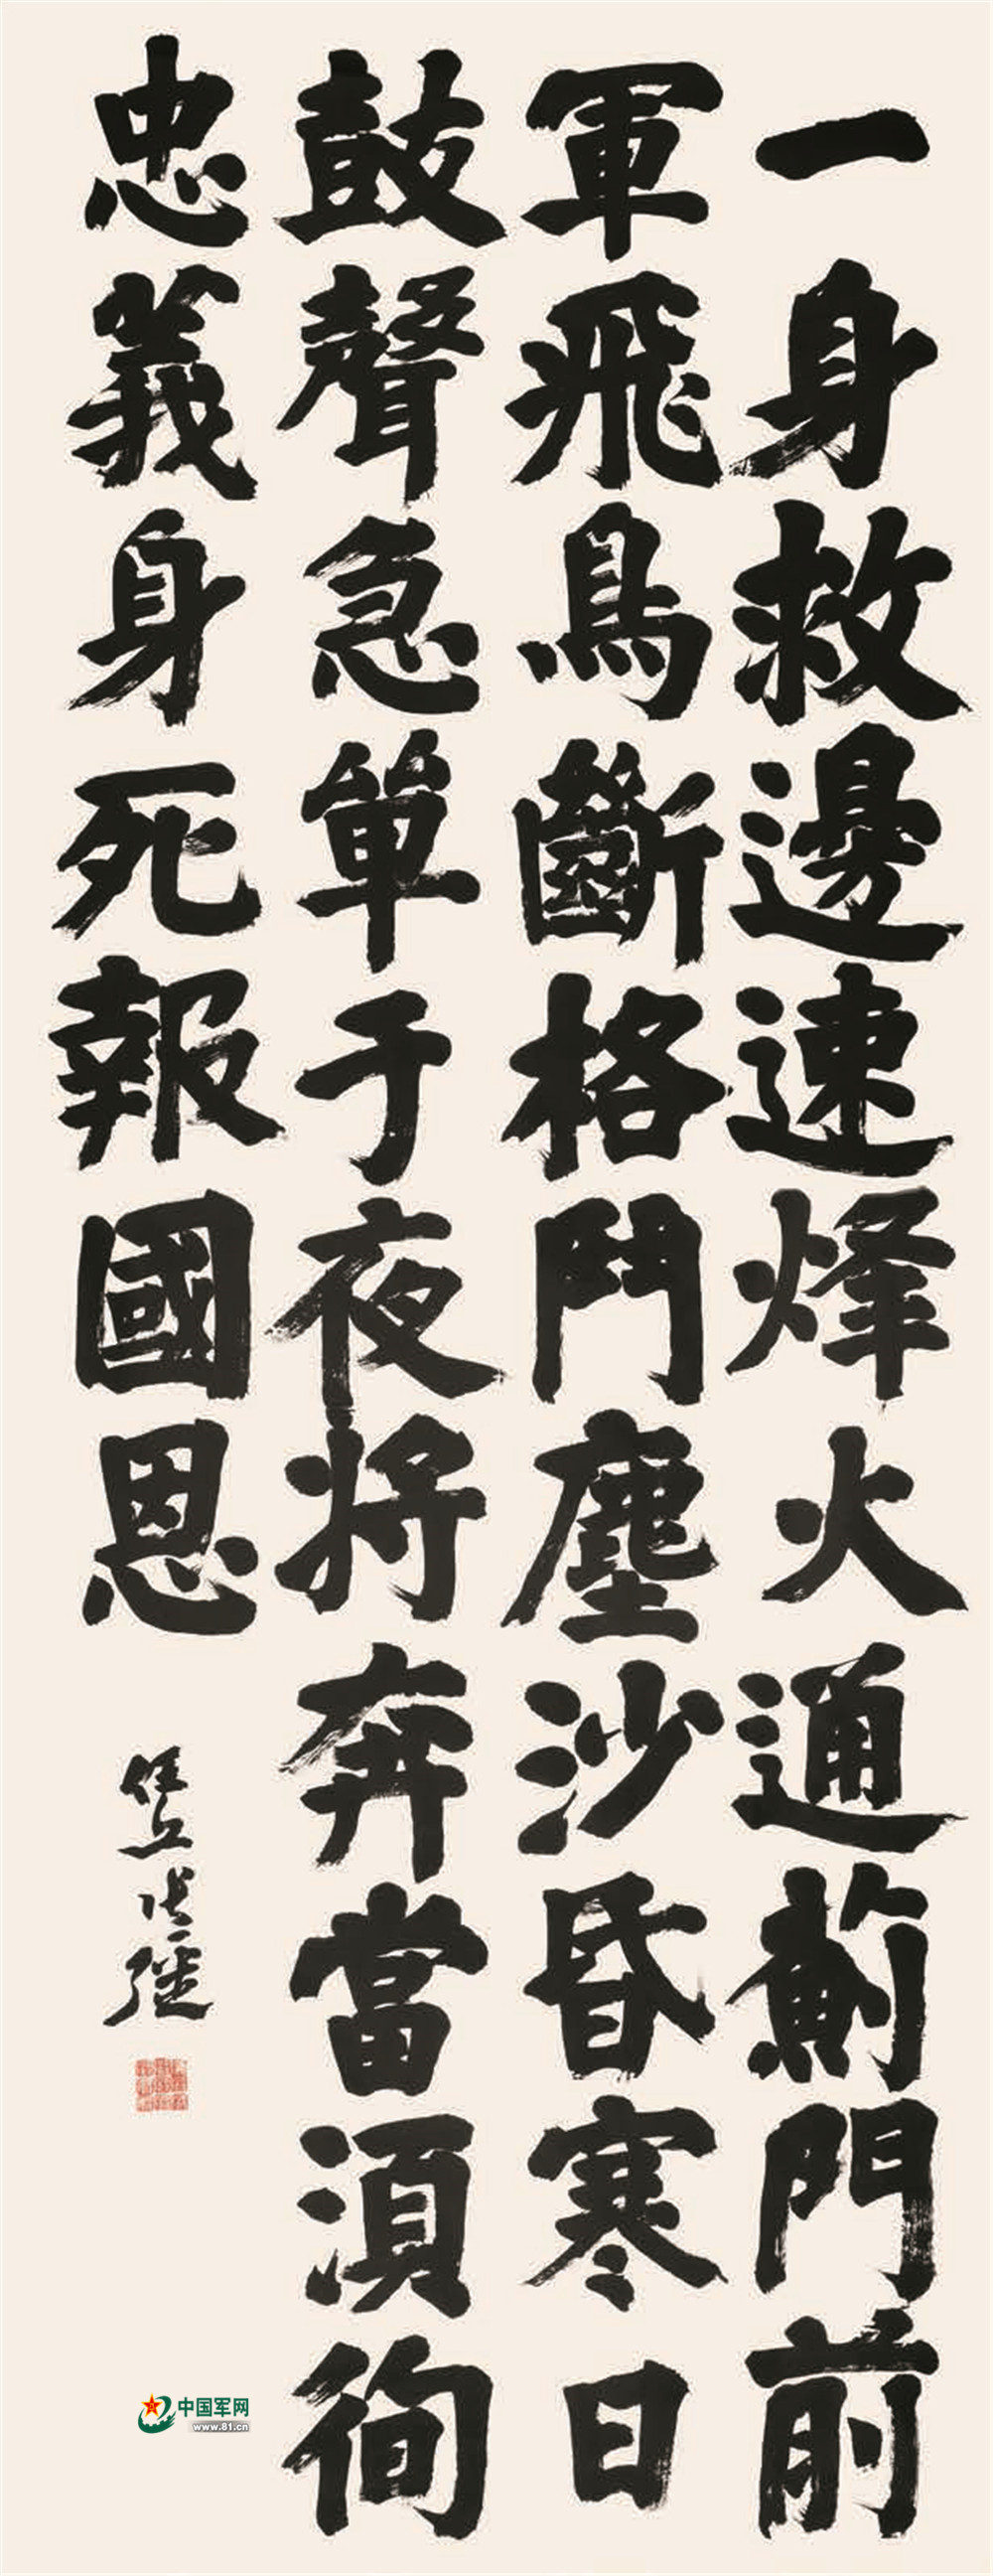 一身救邊速烽火通薊門前
軍飛鳥斷格鬥塵沙昏寒日
鼓聲急單于夜将奔當須徇
忠義身死報國恩
任丘張
中国军网
www.81.cn